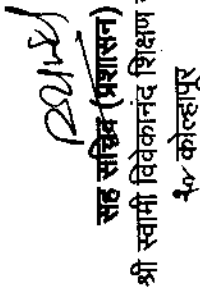 सह सचिव (प्रशासन)
श्री स्वामी विवेकानंद शिक्षण
कोल्हापूर